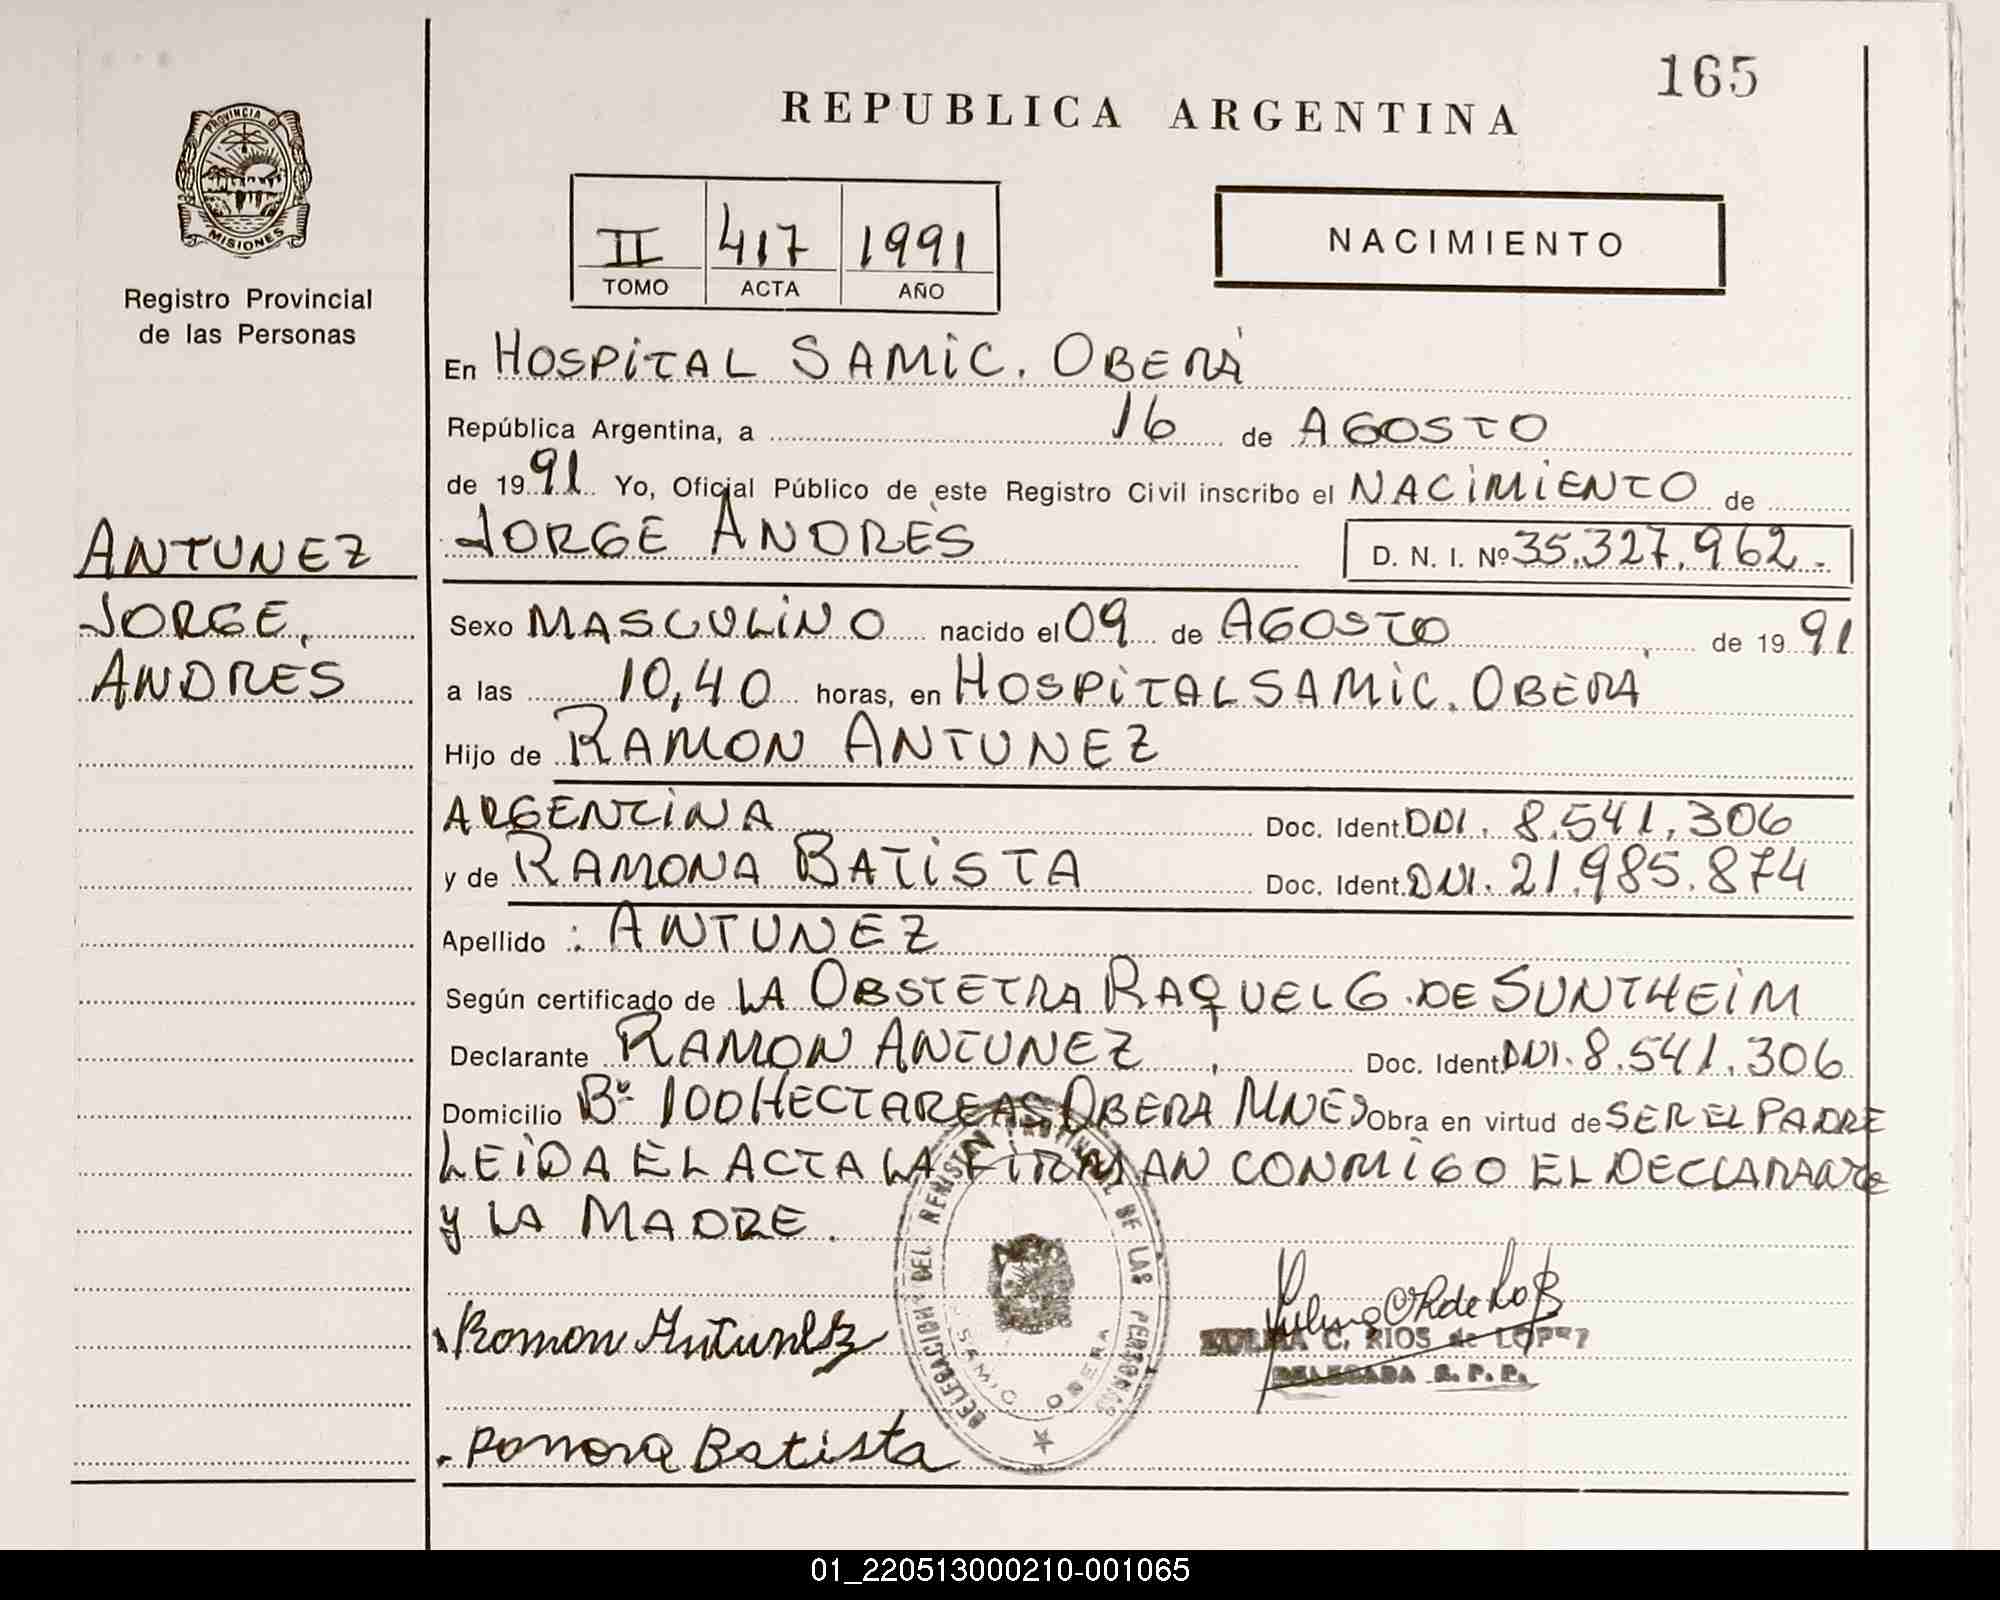 165
REPUBLICA ARGENTINA
PROVINCIA DE
MISIONES
Registro Provincial
de las Personas
II 417 1991
TOMO ACTA AÑO
NACIMIENTO
En HOSPITAL SAMIC. OBERÁ
República Argentina, a 16 de AGOSTO
de 1991 Yo, Oficial Público de este Registro Civil inscribo el NACIMIENTO de
ANTUNEZ
JORGE,
ANDRÉS
JORGE ANDRÉS D. N. I. Nº 35.327.962.-
Sexo MASCULINO nacido el 09 de AGOSTO de 1991
a las 10,40 horas, en HOSPITAL SAMIC. OBERÁ
Hijo de RAMON ANTUNEZ
ARGENTINA Doc. Ident. DNI. 8.541.306
y de RAMONA BATISTA Doc. Ident. DNI. 21.985.874
Apellido : ANTUNEZ
Según certificado de LA OBSTETRA RAQUEL G. DE SUNTHEIM
Declarante RAMON ANTUNEZ Doc. Ident. DNI. 8.541.306
Domicilio Bº 100 HECTAREAS OBERÁ MNES Obra en virtud de SER EL PADRE
LEIDA EL ACTA LA FIRMAN CONMIGO EL DECLARANTE
y LA MADRE.
DELEGACION DEL REGISTRO PROVINCIAL DE LAS PERSONAS
SAMIC OBERA
Ramon Antunez
ZULMA C. RIOS de LOPEZ
DELEGADA R. P. P.
Ramona Batista
01_220513000210-001065